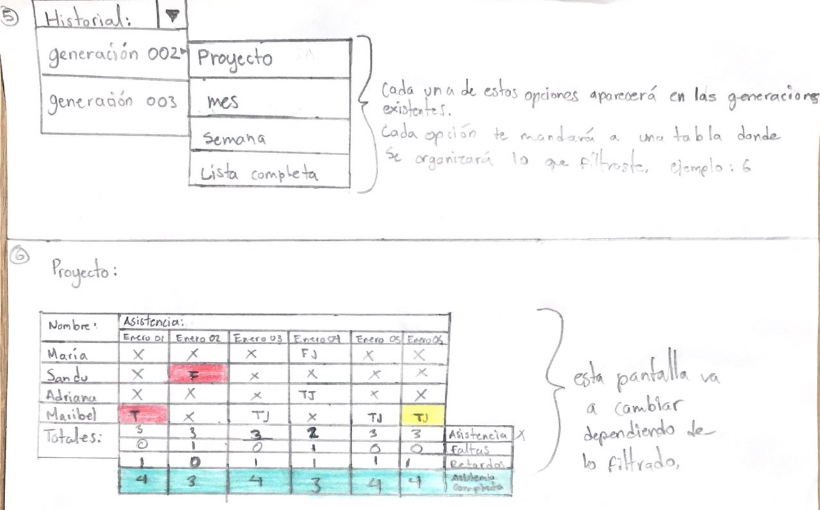 5 Historial: ▼
generación 002
generación 003
Proyecto
mes
semana
Lista completa
Cada una de estas opciones aparecerá en las generaciones
existentes.
Cada opción te mandará a una tabla donde
se organizará lo que filtraste, ejemplo: 6
6
Proyecto:
Nombre: Asistencia:
Enero 01 Enero 02 Enero 03 Enero 04 Enero 05 Enero 06
María X X X FJ X X
Sandy X F X X X X
Adriana X X X TJ X X
Maribel T X TJ X TJ TJ
Totales: 3 3 3 2 3 3 Asistencia X
0 1 0 1 0 0 Faltas
1 0 1 1 1 1 Retardos
4 3 4 3 4 4 Asistencia completa
esta pantalla va
a cambiar
dependiendo de
lo filtrado,